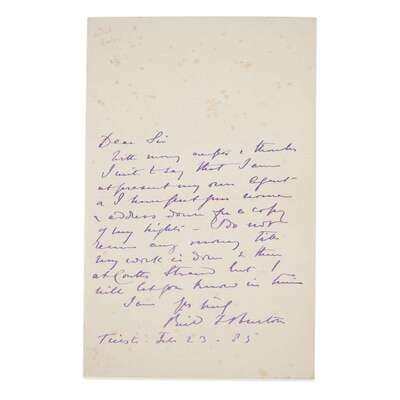 Dear Sir
With many compts & thanks
I write to say that I am
at present my own agent
& I have put your name
& address down for a copy
of my Nights - I do not
any money till
my work is done & then
at Coutts Strand but I
will let you know in time
I am yrs truly
Rich F Burton
Trieste Feb 23 - 85